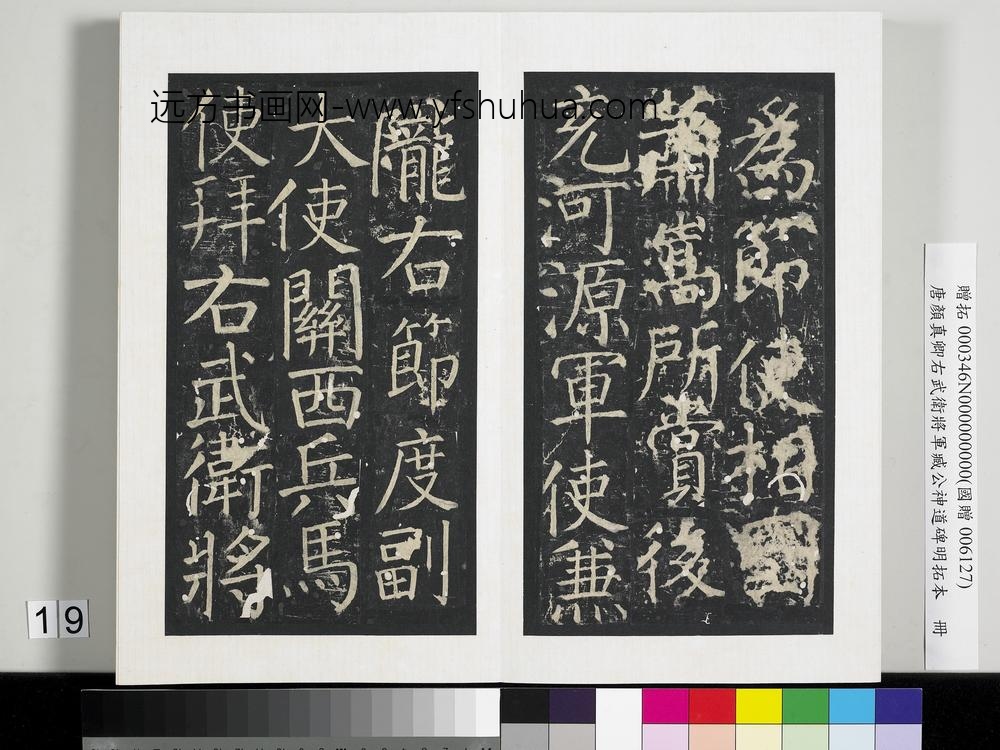 远方书画网-www.yfshuhua.com
為節使相國
蕭嵩所賞後
充河源軍使兼
隴右節度副
大使關西兵馬
使拜右武衛將
贈拓 000346N000000000(國贈 006127)
唐顏真卿右武衛將軍臧公神道碑明拓本 冊
19